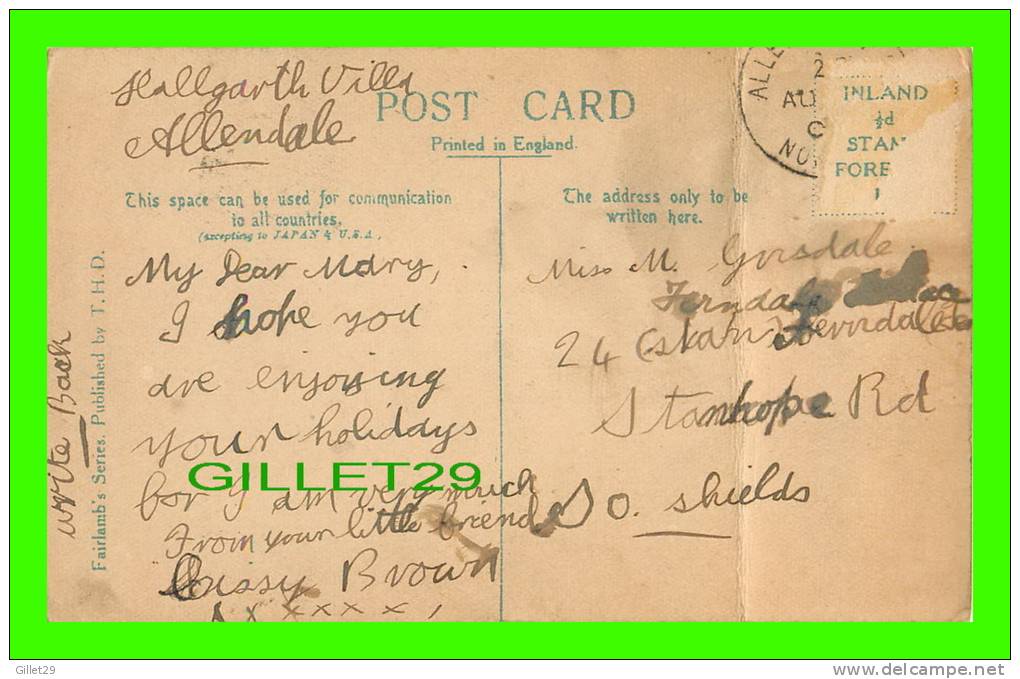 Hallgarth Villa
Allendale
POST CARD
Printed in England.
This space can be used for communication
to all countries.
(excepting to JAPAN & U.S.A.
The address only to be
written here.
ALLE
2
AU
NO
INLAND
½d
STAM
FORE
1
My Dear Mary,
I hope you
are enjoying
your holidays
for I am very much
From your little friend
Cissy Brown
x x x x x
write Back
Fairlamb's Series. Published by T.H.D.
Miss M. Gorsdale
Ferndale
24
Stanhope Rd
So. Shields
GILLET29
Gillet29
www.delcampe.net